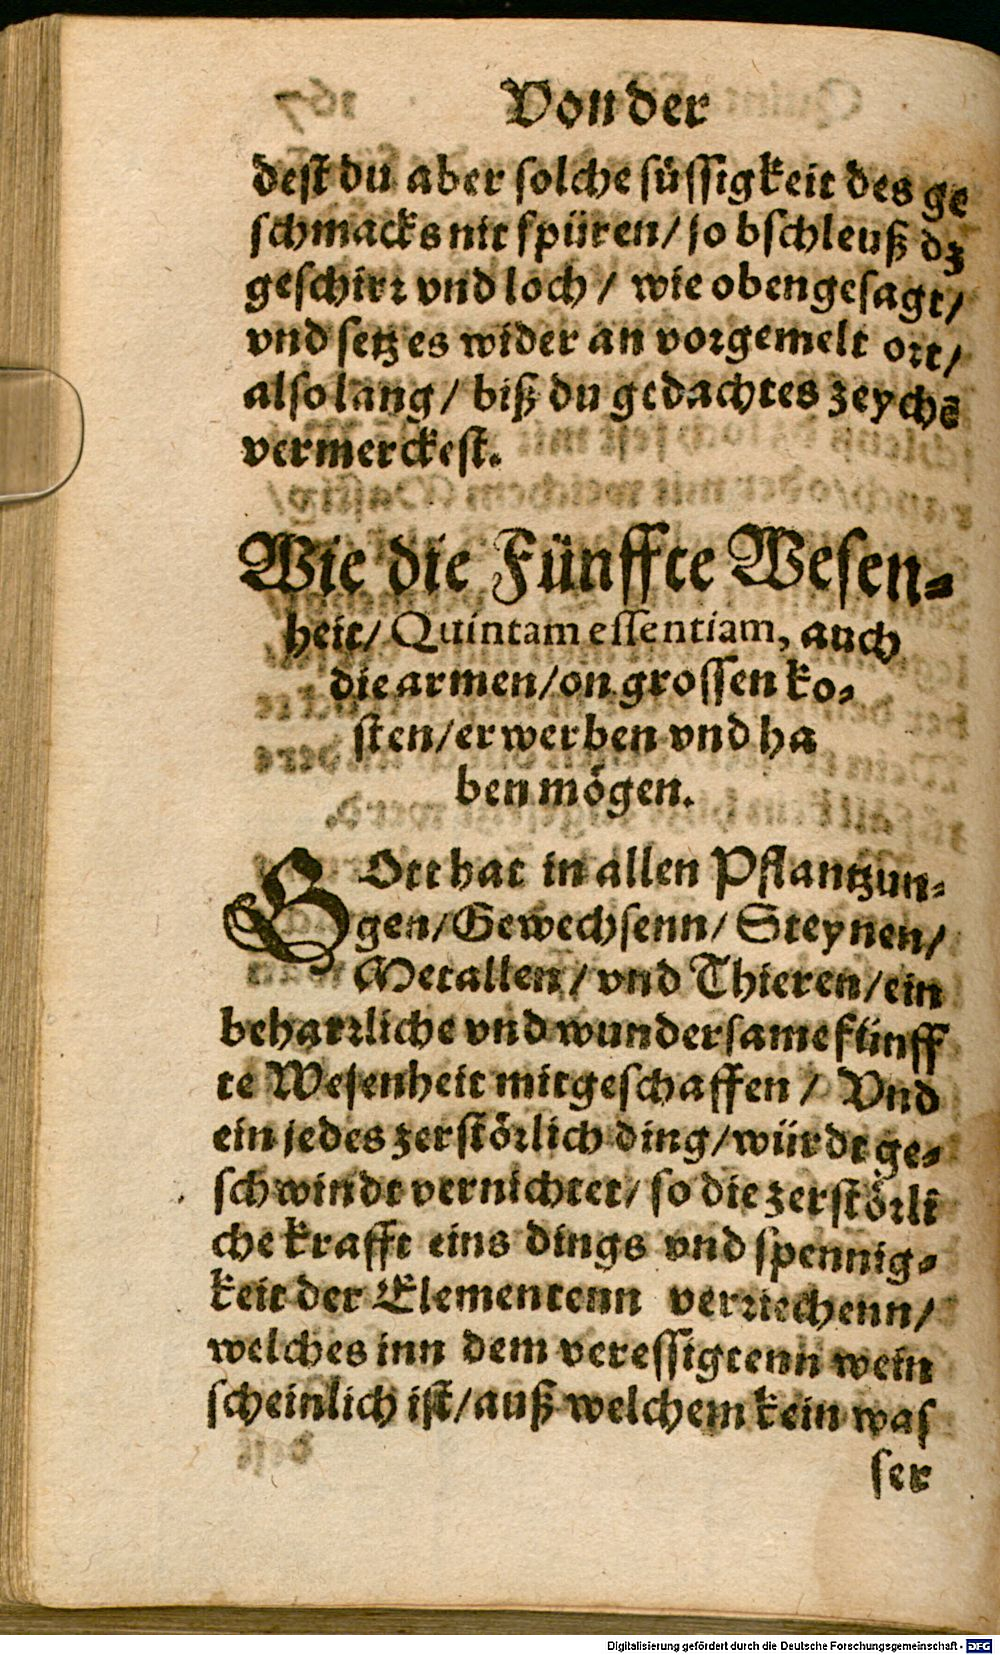 Von der
dest du aber solche süssigkeit des ge
schmacks nit spüren/ so bschleuß dz
geschirr vnd loch/ wie obengesagt/
vnd setz es wider an vorgemelt ort/
also lang/ biß du gedachtes zeychē
vermerckest.
Wie die Fünffte Wesen-
heit/ Quintam essentiam, auch
die armen/ on grossen ko-
sten/ erwerben vnd ha
ben mögen.
GOtt hat in allen Pflantzun-
gen/ Gewechsenn/ Steynen/
Metallen/ vnd Thieren/ ein
beharrliche vnd wundersame fünff
te Wesenheit mitgeschaffen/ Vnd
ein jedes zerstörlich ding/ würdt ge-
schwindt vernichtet/ so die zerstörli
che krafft eins dings vnd spennig-
keit der Elementenn verriechenn/
welches inn dem veressigtenn wein
scheinlich ist/ auß welchem kein was
ser
Digitalisierung gefördert durch die Deutsche Forschungsgemeinschaft - DFG